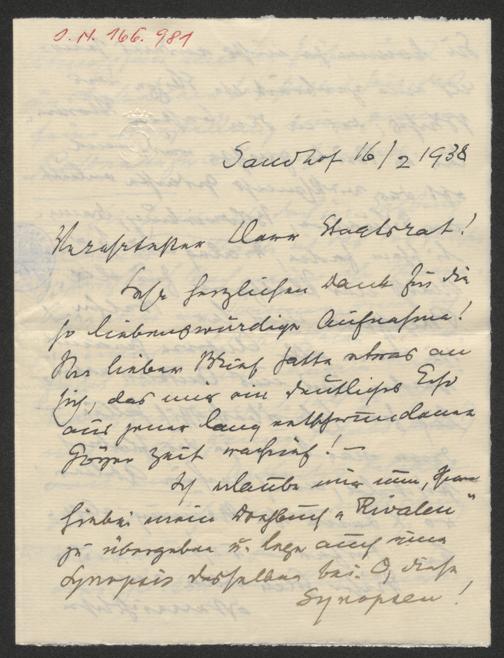 J.N. 166.981
Sandhof 16/2 1938
Verehrtester Herr Staatsrat!
Sehr herzlichen Dank für die
so liebenswürdige Aufnahme!
Ihr lieber Brief hatte etwas an
sich, das mir ein deutliches Echo
aus jener lang entschwundenen
Zeit wachrief! —
Ich erlaube mir nun, Ihnen
hiebei mein Drehbuch „Rivalen"
zu übergeben u. lege auch eine
Synopsis desselben bei. O, diese
Synopsen!